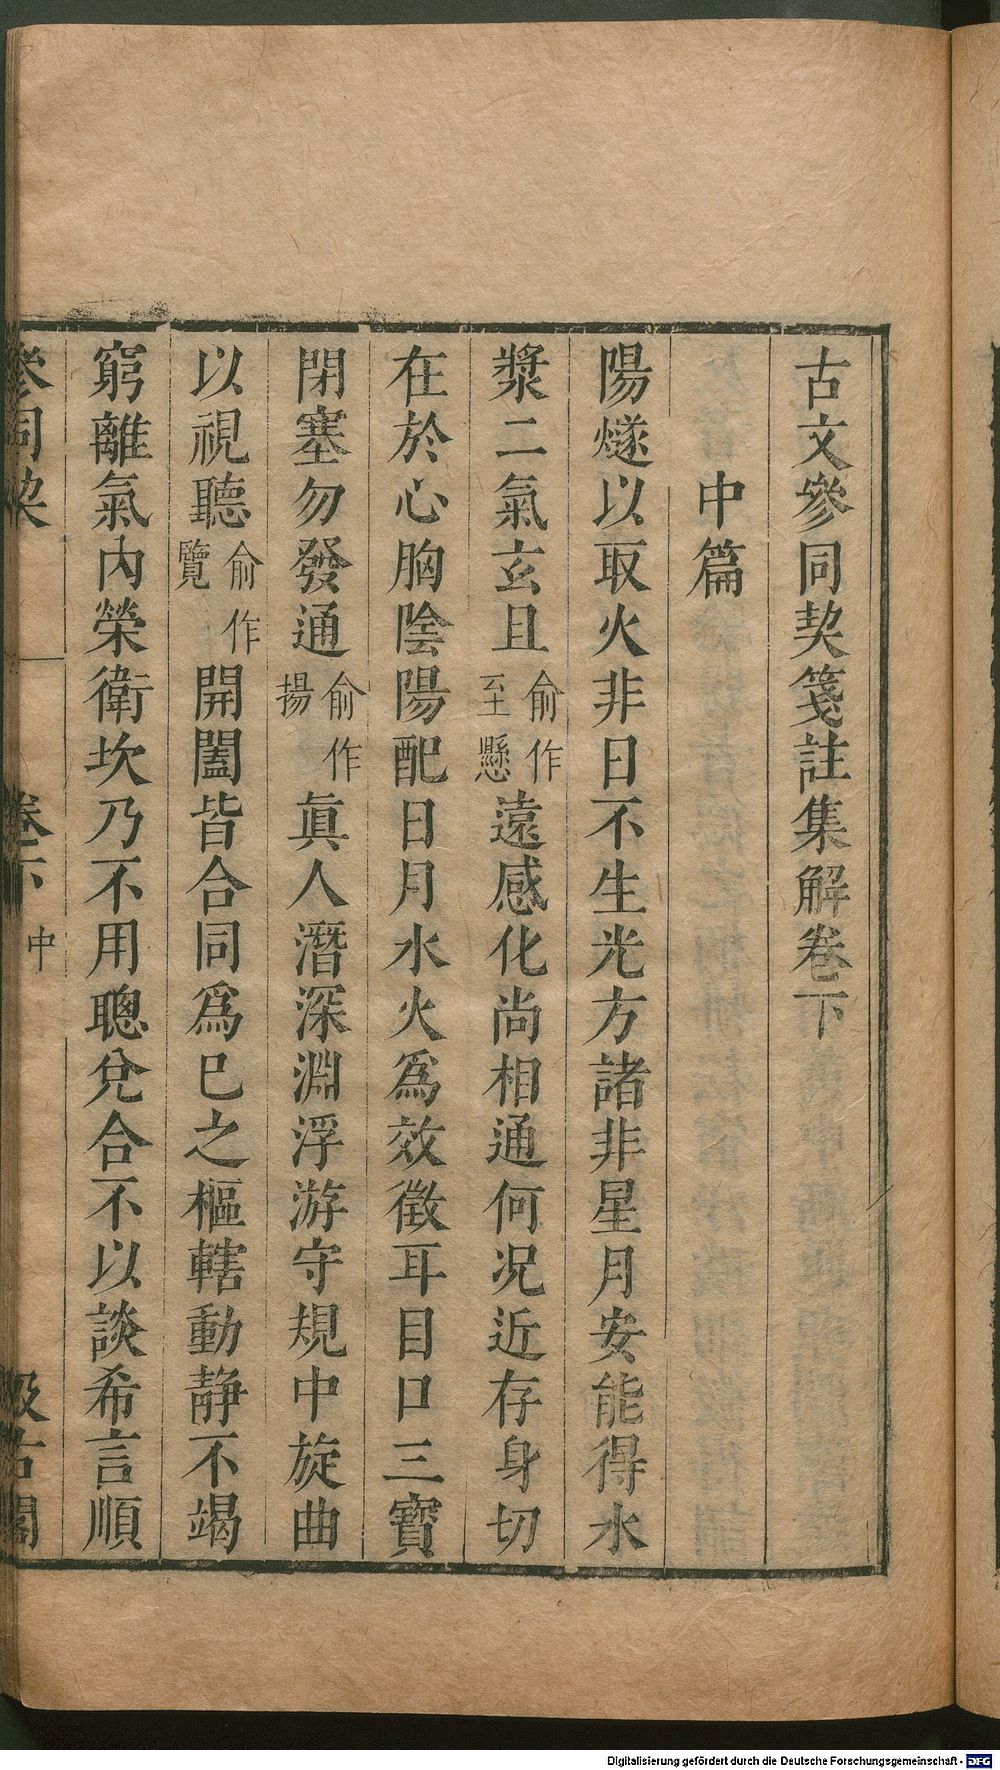 古文參同契箋註集解卷下
中篇
陽燧以取火非日不生光方諸非星月安能得水
漿二氣玄且俞作至懸遠感化尚相通何况近存身切
在於心胸陰陽配日月水火爲效徵耳目口三寳
閉塞勿發通俞作揚眞人潛深淵浮游守規中旋曲
以視聽俞作覽開闔皆合同爲巳之樞轄動静不竭
窮離氣內榮衛坎乃不用聰兌合不以談希言順
參同契 卷下 中 汲古閣
Digitalisierung gefördert durch die Deutsche Forschungsgemeinschaft - DFG